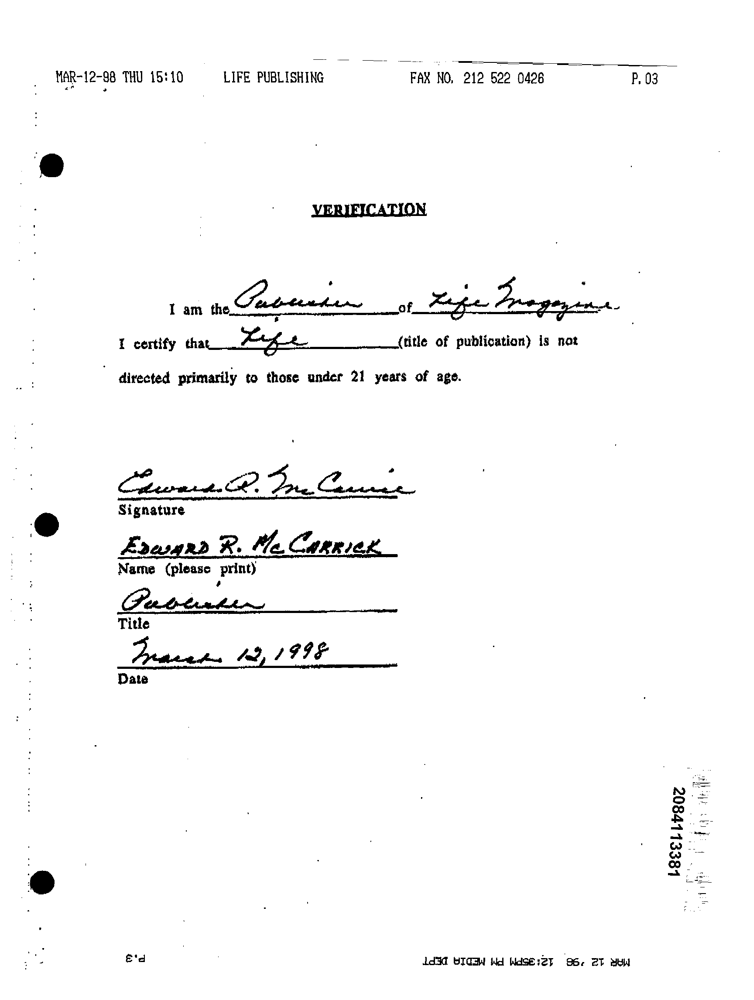 MAR-12-98 THU 15:10 LIFE PUBLISHING FAX NO. 212 522 0426 P.03
VERIFICATION
I am the Publisher of Life Magazine
I certify that Life (title of publication) is not
directed primarily to those under 21 years of age.
Edward R. McCarrick
Signature
EDWARD R. McCARRICK
Name (please print)
Publisher
Title
March 12, 1998
Date
2084113381
P.3 MAR 12 '98 12:35PM PM MEDIA DEPT